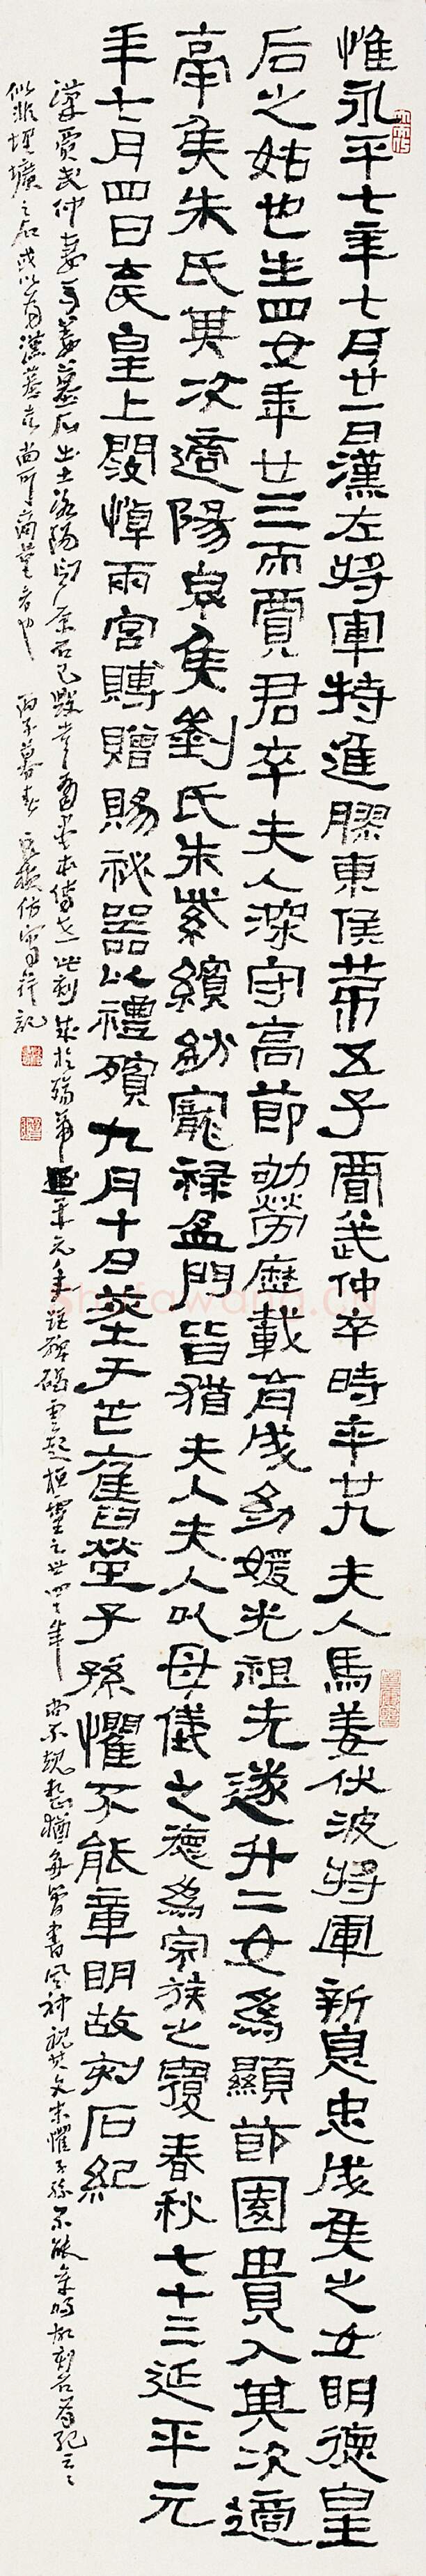 惟永平七年七月廿一日漢左將軍特進膠東侯苐五子賈武仲卒時年廿九夫人馬姜伏波將軍新息忠成侯之女明德皇
后之姑也生四女年廿三而賈君卒夫人深守高節劬勞歷載育成幼媛光祖先遂升二女為顯節園貴人其次適
鬲侯朱氏其次適陽泉侯劉氏朱紫繽紛寵祿盈門皆猶夫人夫人以母儀之德為宗族之覆春秋七十三延平元
年七月四日喪皇上閔悼兩宮賻贈賜祕器以禮殯九月十日葬于芒舊塋子孫懼不能章明故刻石紀
漢賈武仲妻馬姜墓石出土洛陽原石已毀此刻成於殤帝延平元年距碑碣雲起桓靈之世四十年尚不規整猶其文末懼子孫不能章明故刻石紀云云
似非埋壙之石或以為漢墓志尚可商量者也 丙子暮春仿寫并記
Shufawang.CN